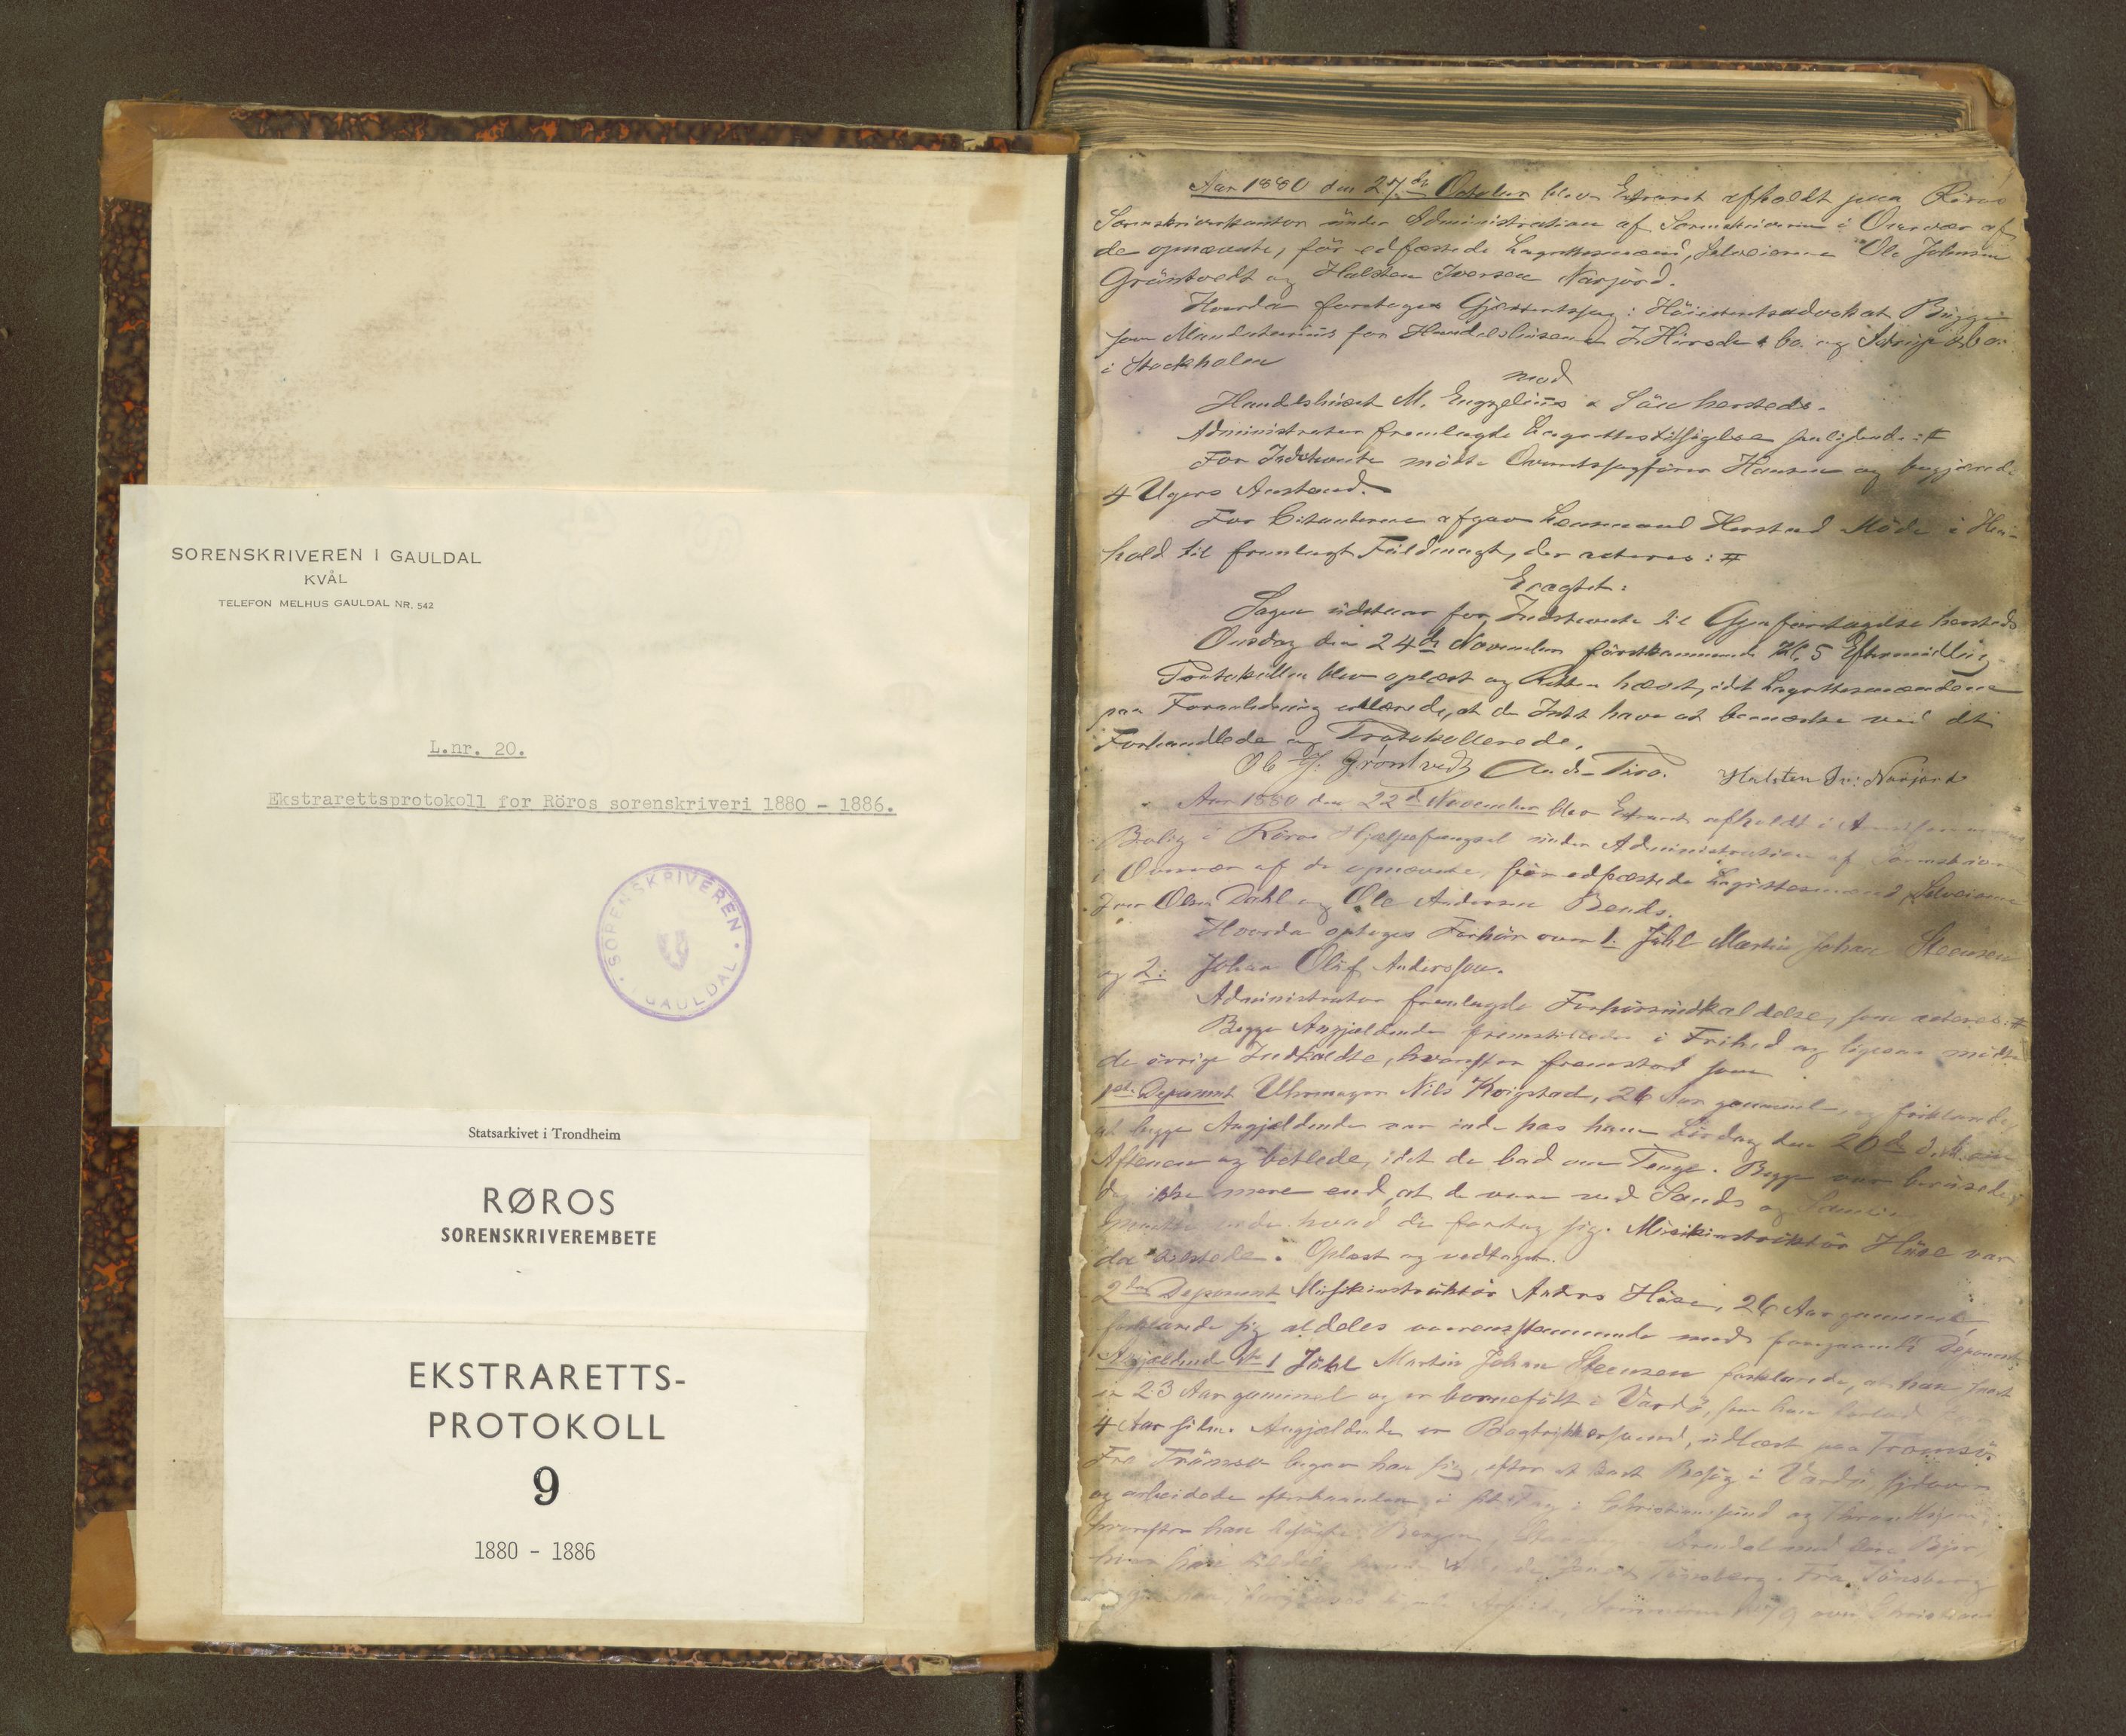 SORENSKRIVEREN I GAULDAL
KVÅL
TELEFON MELHUS GAULDAL NR. 542
L.nr. 20.
Ekstrarettsprotokoll for Röros sorenskriveri 1880 - 1886.
SORENSKRIVEREN I GAULDAL
Statsarkivet i Trondheim
RØROS
SORENSKRIVEREMBETE
EKSTRARETTS-
PROTOKOLL
9
1880 - 1886
Aar 1880 den 27de October blev Extraret afholdt paa Röros
Sorenskriverkontor under Administration af Sorenskriveren i Overvær af
de opnævnte, før edfæstede Lagrettesmænd, Selveierne Ole Johnsen
Gröntvedt og Halsten Iversen Narjord.
Hvorda foretoges Gjæsteretssag: Höiesteretsadvokat Bugge
som Mandatarius for Handelshusene J. & Co. og & Co.
i Stockholm
mod
Handelshuset M. Engzelius & Sön hersteds.
Administrator fremlagde Lagrettestilsigelse saalydende: #
For Indstevnte mödte Overretssagförer Hansen og begjærede
4 Ugers Anstand.
For Citanterne afgav Lensmand Herstad Möde i Hen-
hold til fremlagt Fuldmagt, der acteres: #
Eragtet:
Sagen udstaar for Indstevnte til Gjenforetagelse hersteds
Onsdag den 24de November förstkommende Kl. 5 Eftermiddag.
Protokollen blev oplæst og Retten hævet, idet Lagrettesmændene
paa Foranledning erklærede, at de Intet have at bemærke ved det
Forhandlede og Protokollerede.
Ole J. Gröntvedt Halsten Iv: Narjord
Aar 1880 den 22de November blev Extraret afholdt i
Bolig i Röros Hjælpefængsel under Administration af Sorenskriveren
i Overvær af de opnævnte, før edfæstede Lagrettesmænd, Selveierne
Iver Olsen Dahl og Ole Andersen Bends.
Hvorda optoges Forhör over 1: Juhl Martin Johan Steensen
og 2: Johan Oluf Andersson.
Administrator fremlagde Forhörsindkaldelse, som acteres: #
Begge Angjældende fremstilledes i Frihed og ligesaa mödte
de övrige Indkaldte, hvorefter fremstod som
1ste Deponent Uhrmager Nils Koigstad, 26 Aar gammel, og forklarede,
at begge Angjældende var inde hos ham Lördag den 20de d.M. om
Aftenen og betlede, idet de bad om Penge. Begge var berusede,
dog ikke mere end at de vare ved Sands og Samling
hvad de foretog sig. Musikinstruktör Huse var
da tilstede. Oplæst og vedtaget.
2den Deponent Musikinstruktör Anders Huse, 26 Aar gammel,
forklarede sig aldeles overensstemmende med foregaaende Deponent.
Angjældende No 1 Juhl Martin Johan Steensen forklarede, at han
er 23 Aar gammel og er barnefödt i Vardö, som han forlod
4 Aar siden. Angjældende er Bogtrykkersvend, udlært paa Tromsö.
Fra Tromsö begav han sig, efter et kort Besög i Vardö
og arbeidede efterhaanden i sit Fag i Christianssund og Throndhjem,
hvorefter han besögte Bergen,
Tönsberg. Fra Tönsberg
Sommeren 1879 over Christiania